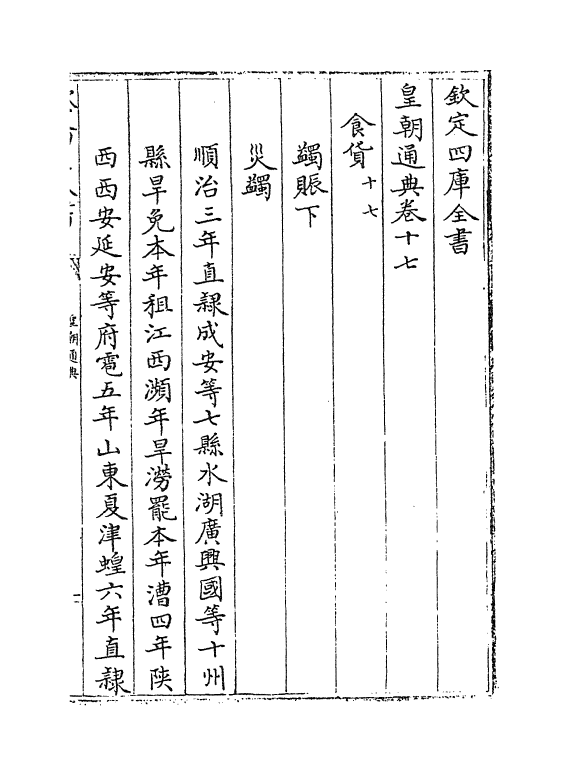 欽定四庫全書
皇朝通典卷十七
食貨十七
蠲賑下
災蠲
順治三年直隸成安等七縣水湖廣興國等十州
縣旱免本年租江西瀕年旱澇罷本年漕四年陝
西西安延安等府雹五年山東夏津蝗六年直隸
皇朝通典